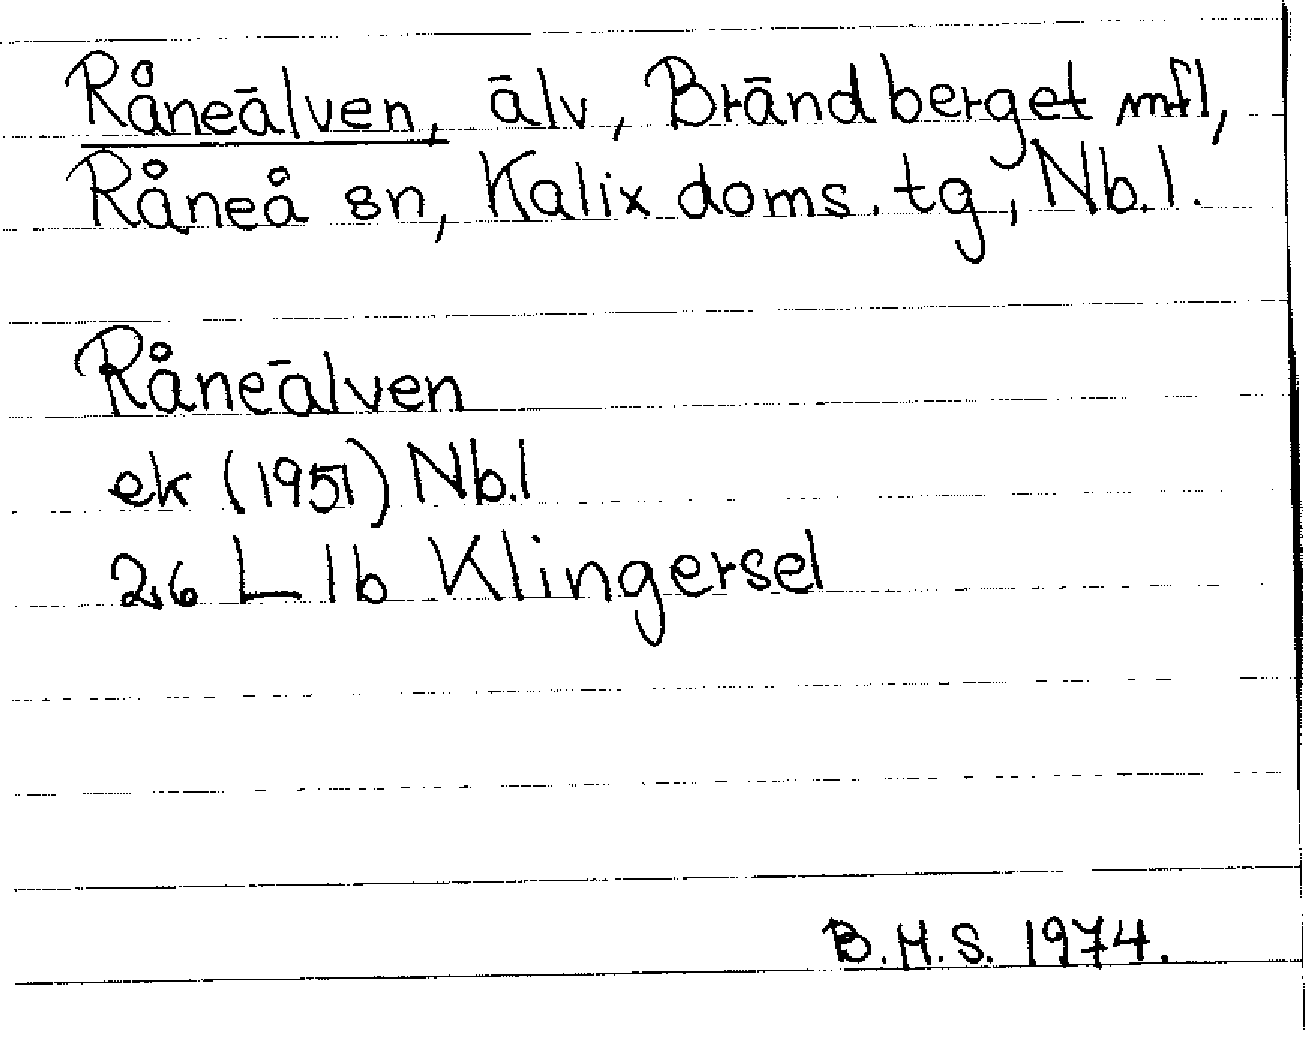 Råneälven, älv, Brändberget mfl,
Råneå sn, Kalix doms. tg, Nb.l.
Råneälven
ek (1951) Nb.l
26 L lb Klingersel
B.M.S. 1974.